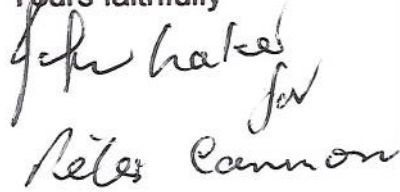 Yours faithfully
John Lake
for
Peter Cannon